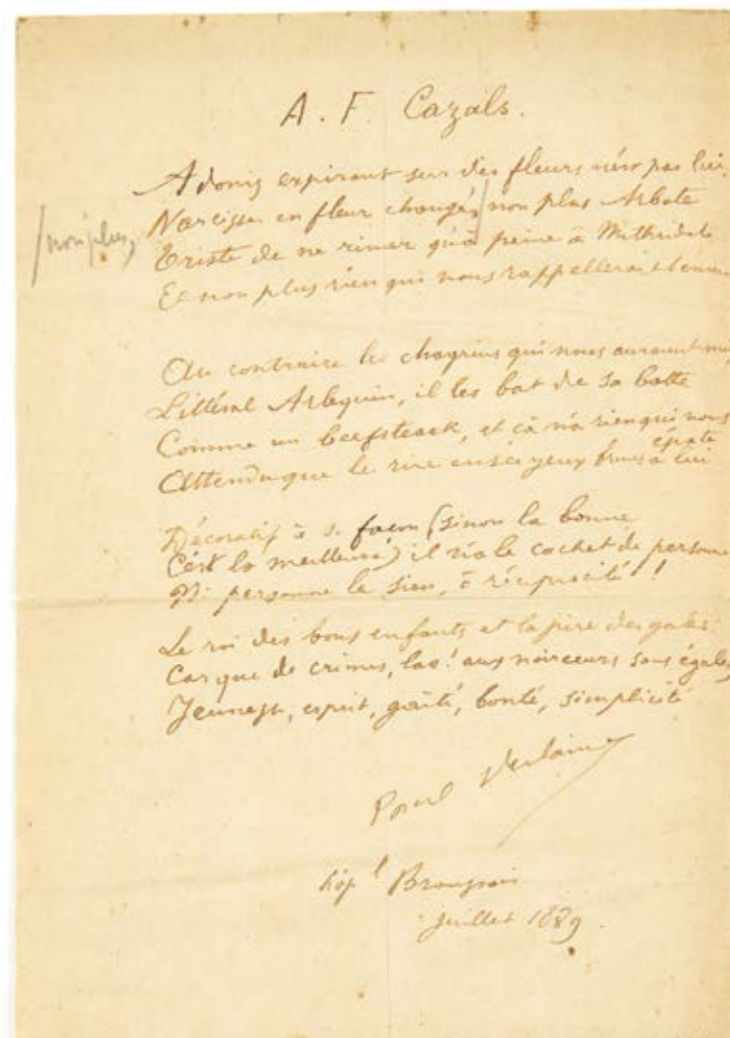 A. F. Cazals.
Adonis expirant sur des fleurs n'est pas lui,
/non plus,
Narcisse en fleur changé,/ non plus Arbate
Triste de ne rimer qu'à peine à Mithridate
Et non plus rien qui nous rappellerait l'ennui
Au contraire les chagrins qui nous auraient nui,
Littéral Arlequin, il les bat de sa batte
Comme un beefsteack, et çà n'a rien qui nous
épate
Attendu que le rire en ses yeux bruns a lui
Décoratif à sa façon (sinon la bonne
C'est la meilleure) il n'a le cachet de personne
Ni personne le sien, ô réciprocité !
Le roi des bons enfants et la pire des gales:
Car que de crimes, las! aux noirceurs sans égales,
Jeunesse, esprit, gaîté, bonté, simplicité
Paul Verlaine
hôpl Broussais
Juillet 1889.